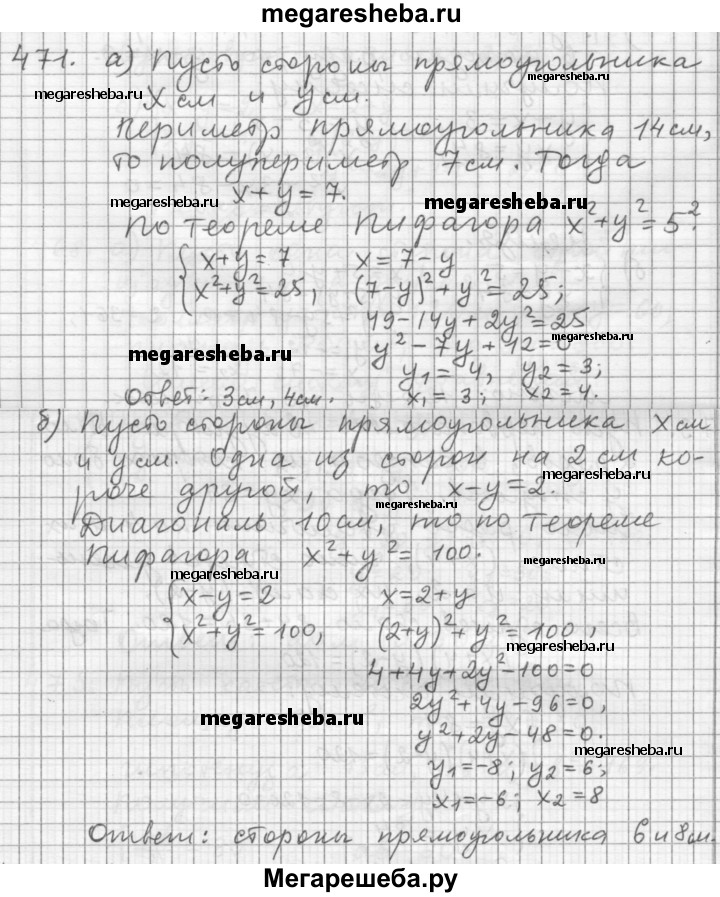 megaresheba.ru
471. а) Пусть стороны прямоугольника
megaresheba.ru
megaresheba.ru x см и y см.
Периметр прямоугольника 14 см,
то полупериметр 7 см. Тогда
megaresheba.ru x+y=7. megaresheba.ru
По теореме Пифагора x²+y²=5².
{ x+y=7 x=7-y
x²+y²=25, (7-y)²+y²=25;
49-14y+2y²=25
megaresheba.ru y²-7y+12=0 megaresheba.ru
y₁=4, y₂=3;
Ответ: 3 см, 4 см. x₁=3; x₂=4.
б) Пусть стороны прямоугольника x см
и y см. Одна из сторон на 2 см ко-
megaresheba.ru
роче другой, то x-y=2.
megaresheba.ru
Диагональ 10 см, то по теореме
Пифагора x²+y²=100.
megaresheba.ru megaresheba.ru
{ x-y=2 x=2+y
x²+y²=100, (2+y)²+y²=100,
megaresheba.ru
4+4y+2y²-100=0
2y²+4y-96=0,
megaresheba.ru
y²+2y-48=0.
megaresheba.ru
y₁=-8; y₂=6;
x₁=-6; x₂=8
Ответ: стороны прямоугольника 6 и 8 см.
Мегарешеба.ру